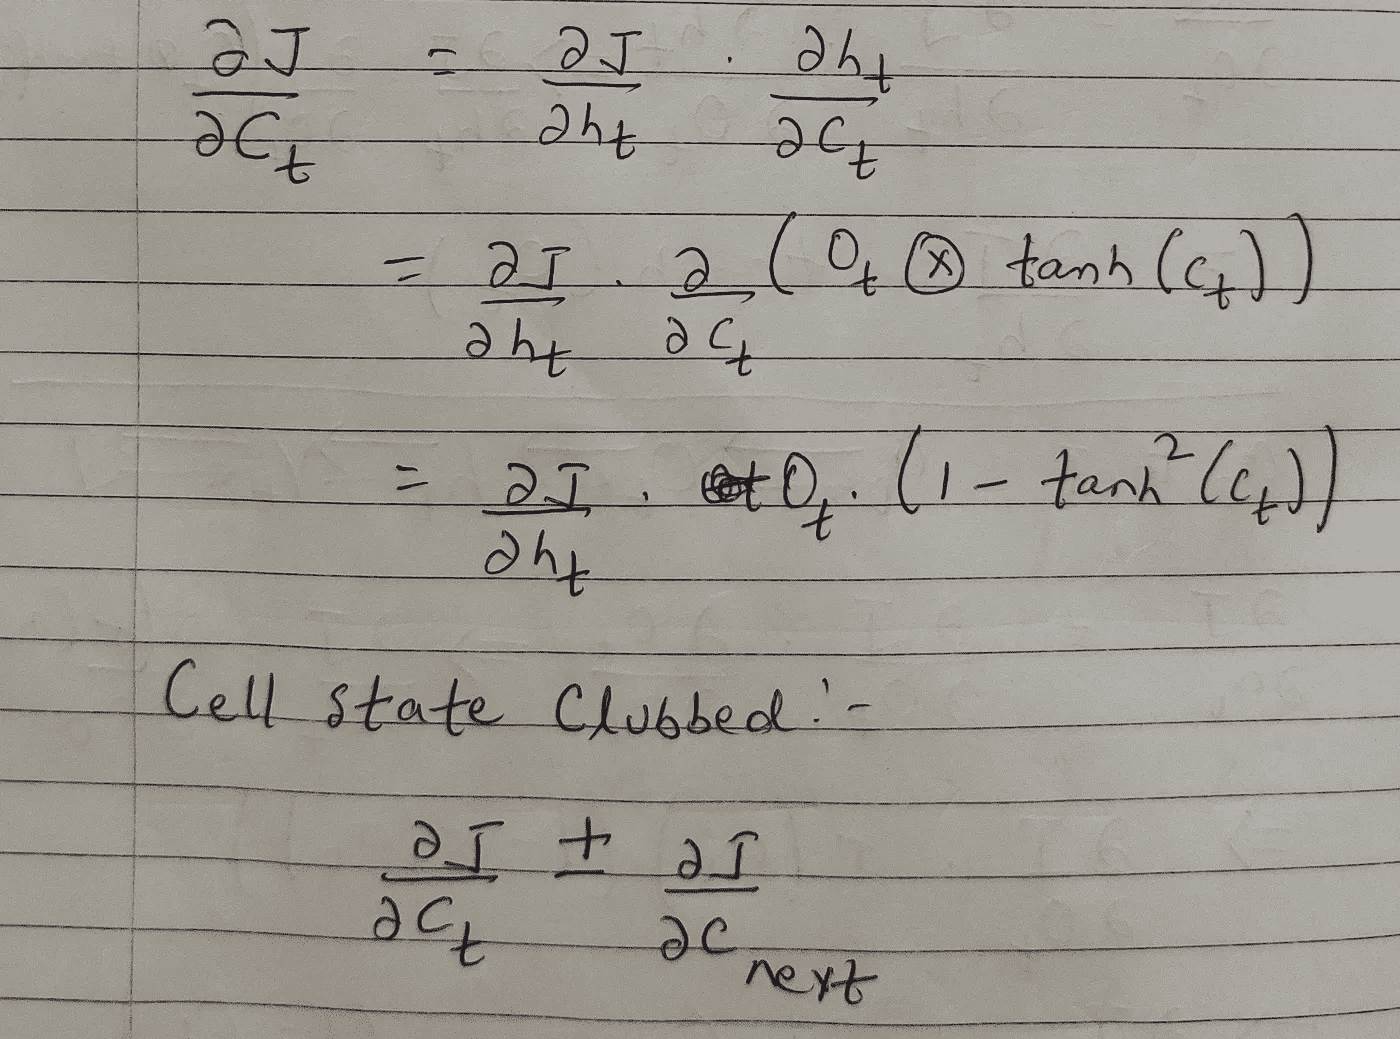 ∂J/∂C_t = ∂J/∂h_t . ∂h_t/∂C_t
= ∂J/∂h_t . ∂/∂C_t (O_t ⊗ tanh(C_t))
= ∂J/∂h_t . O_t . (1 - tanh²(C_t))
Cell state Clubbed :-
∂J/∂C_t ± ∂J/∂C_next